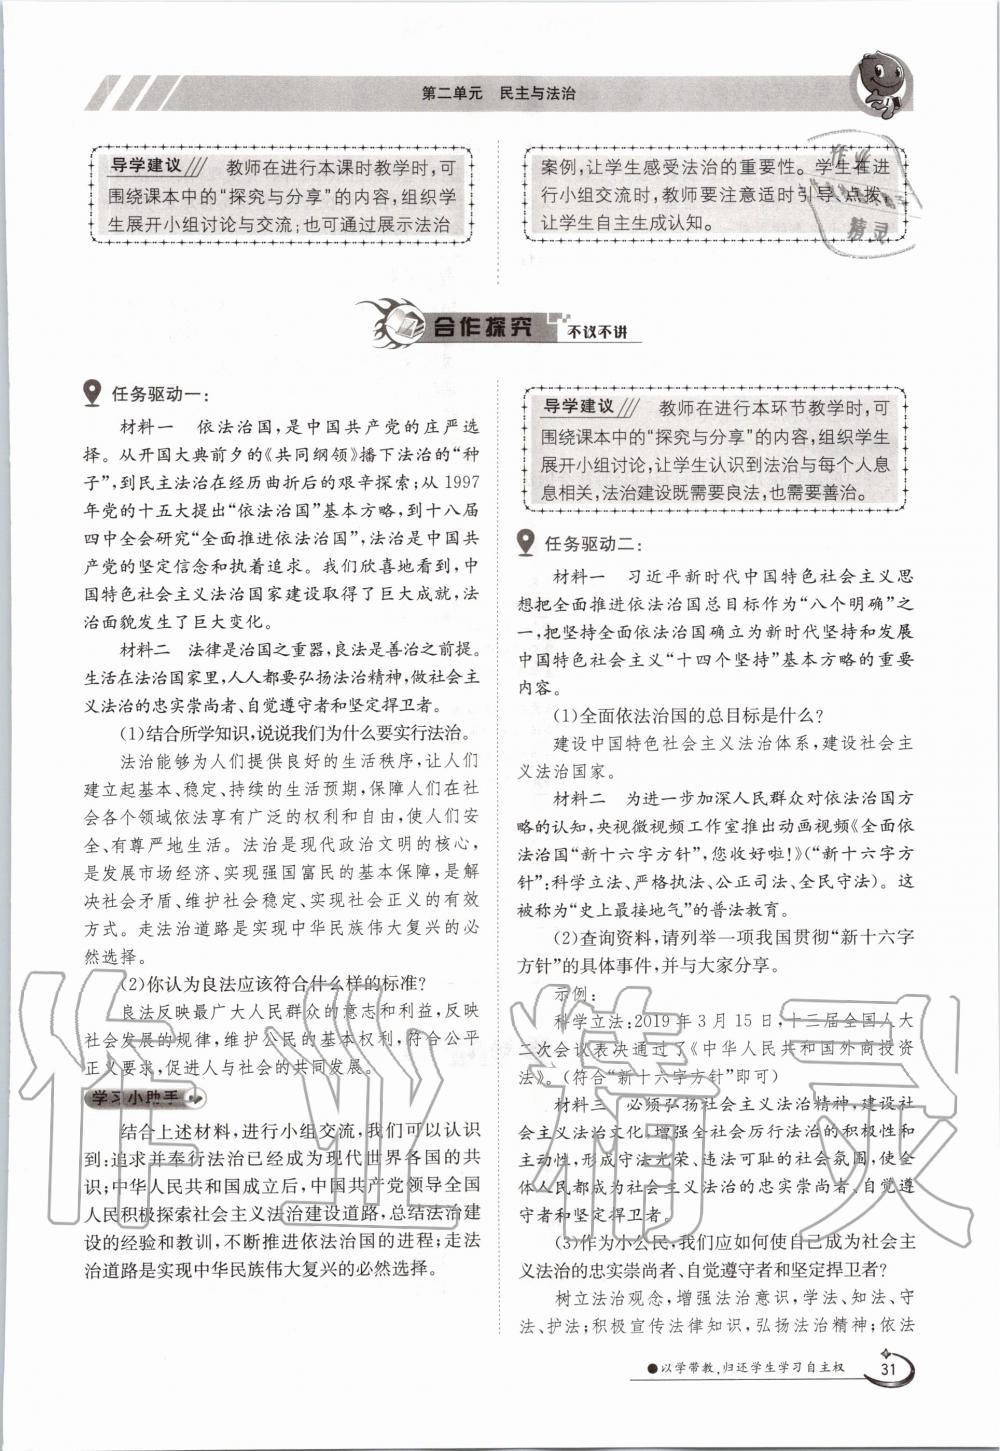 第二单元 民主与法治
导学建议 教师在进行本课时教学时,可
围绕课本中的“探究与分享”的内容,组织学
生展开小组讨论与交流;也可通过展示法治
案例,让学生感受法治的重要性。学生在进
行小组交流时,教师要注意适时引导、点拨,
让学生自主生成认知。
作业
精灵
合作探究 不议不讲
任务驱动一:
材料一 依法治国,是中国共产党的庄严选
择。从开国大典前夕的《共同纲领》播下法治的“种
子”,到民主法治在经历曲折后的艰辛探索;从1997
年党的十五大提出“依法治国”基本方略,到十八届
四中全会研究“全面推进依法治国”,法治是中国共
产党的坚定信念和执着追求。我们欣喜地看到,中
国特色社会主义法治国家建设取得了巨大成就,法
治面貌发生了巨大变化。
材料二 法律是治国之重器,良法是善治之前提。
生活在法治国家里,人人都要弘扬法治精神,做社会主
义法治的忠实崇尚者、自觉遵守者和坚定捍卫者。
(1)结合所学知识,说说我们为什么要实行法治。
法治能够为人们提供良好的生活秩序,让人们
建立起基本、稳定、持续的生活预期,保障人们在社
会各个领域依法享有广泛的权利和自由,使人们安
全、有尊严地生活。法治是现代政治文明的核心,
是发展市场经济、实现强国富民的基本保障,是解
决社会矛盾、维护社会稳定、实现社会正义的有效
方式。走法治道路是实现中华民族伟大复兴的必
然选择。
(2)你认为良法应该符合什么样的标准?
良法反映最广大人民群众的意志和利益,反映
社会发展的规律,维护公民的基本权利,符合公平
正义要求,促进人与社会的共同发展。
学习小助手
结合上述材料,进行小组交流,我们可以认识
到:追求并奉行法治已经成为现代世界各国的共
识;中华人民共和国成立后,中国共产党领导全国
人民积极探索社会主义法治建设道路,总结法治建
设的经验和教训,不断推进依法治国的进程;走法
治道路是实现中华民族伟大复兴的必然选择。
导学建议 教师在进行本环节教学时,可
围绕课本中的“探究与分享”的内容,组织学生
展开小组讨论,让学生认识到法治与每个人息
息相关,法治建设既需要良法,也需要善治。
任务驱动二:
材料一 习近平新时代中国特色社会主义思
想把全面推进依法治国总目标作为“八个明确”之
一,把坚持全面依法治国确立为新时代坚持和发展
中国特色社会主义“十四个坚持”基本方略的重要
内容。
(1)全面依法治国的总目标是什么?
建设中国特色社会主义法治体系,建设社会主
义法治国家。
材料二 为进一步加深人民群众对依法治国方
略的认知,央视微视频工作室推出动画视频《全面依
法治国“新十六字方针”,您收好啦!》(“新十六字方
针”:科学立法、严格执法、公正司法、全民守法)。这
被称为“史上最接地气”的普法教育。
(2)查询资料,请列举一项我国贯彻“新十六字
方针”的具体事件,并与大家分享。
示例:
科学立法:2019年3月15日,十三届全国人大
二次会议表决通过了《中华人民共和国外商投资
法》。(符合“新十六字方针”即可)
材料三 必须弘扬社会主义法治精神,建设社
会主义法治文化,增强全社会厉行法治的积极性和
主动性,形成守法光荣、违法可耻的社会氛围,使全
体人民都成为社会主义法治的忠实崇尚者、自觉遵
守者和坚定捍卫者。
(3)作为小公民,我们应如何使自己成为社会主
义法治的忠实崇尚者、自觉遵守者和坚定捍卫者?
树立法治观念,增强法治意识,学法、知法、守
法、护法;积极宣传法律知识,弘扬法治精神;依法
作业精灵
●以学带教,归还学生学习自主权 31